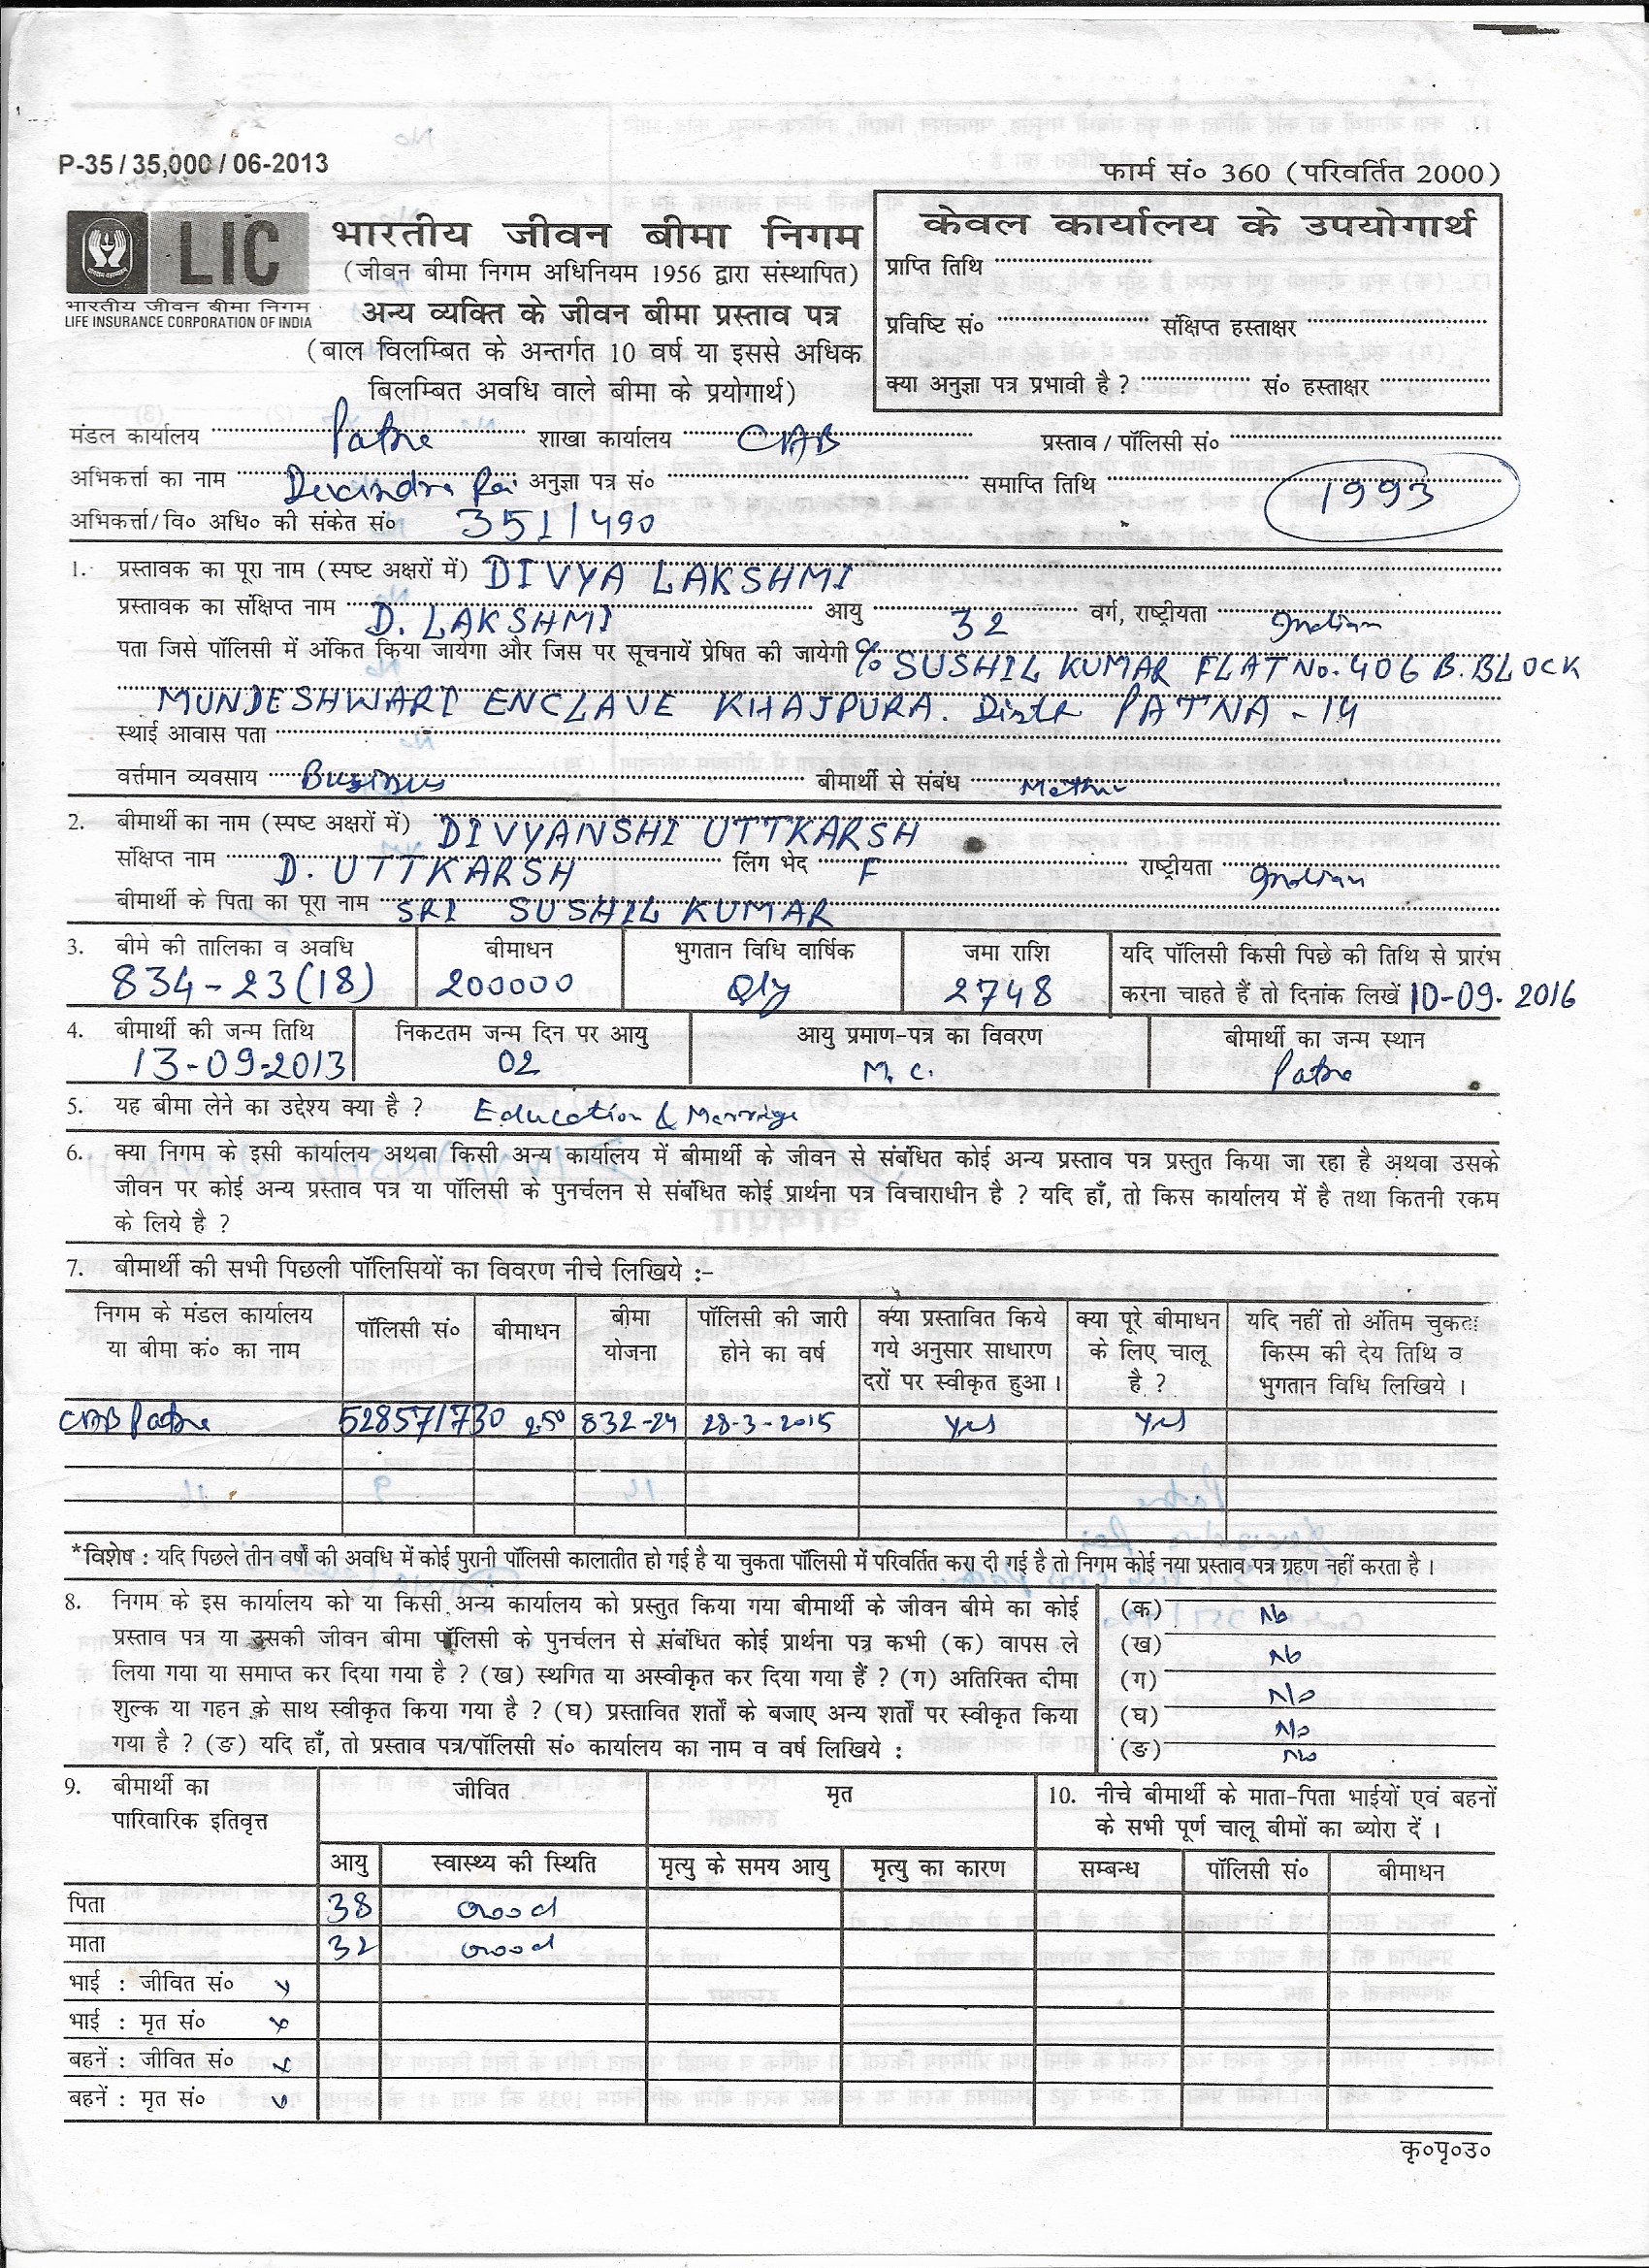 P-35 / 35,000 / 06-2013
फार्म सं० 360 (परिवर्तित 2000)
LIC
भारतीय जीवन बीमा निगम
LIFE INSURANCE CORPORATION OF INDIA
भारतीय जीवन बीमा निगम
(जीवन बीमा निगम अधिनियम 1956 द्वारा संस्थापित)
अन्य व्यक्ति के जीवन बीमा प्रस्ताव पत्र
(बाल विलम्बित के अन्तर्गत 10 वर्ष या इससे अधिक
बिलम्बित अवधि वाले बीमा के प्रयोगार्थ)
केवल कार्यालय के उपयोगार्थ
प्राप्ति तिथि
प्रविष्टि सं० संक्षिप्त हस्ताक्षर
क्या अनुज्ञा पत्र प्रभावी है ? सं० हस्ताक्षर
मंडल कार्यालय Patna शाखा कार्यालय CAB प्रस्ताव / पॉलिसी सं०
अभिकर्त्ता का नाम Devendra Rai अनुज्ञा पत्र सं० समाप्ति तिथि 1993
अभिकर्त्ता/वि० अधि० की संकेत सं० 3511490
1. प्रस्तावक का पूरा नाम (स्पष्ट अक्षरों में) DIVYA LAKSHMI
प्रस्तावक का संक्षिप्त नाम D. LAKSHMI आयु 32 वर्ग, राष्ट्रीयता Indian
पता जिसे पॉलिसी में अंकित किया जायेगा और जिस पर सूचनायें प्रेषित की जायेगी % SUSHIL KUMAR FLAT No. 406 B. BLOCK
MUNDESHWARI ENCLAVE KHAJPURA. Distt PATNA - 14
स्थाई आवास पता
वर्त्तमान व्यवसाय Business बीमार्थी से संबंध Mother
2. बीमार्थी का नाम (स्पष्ट अक्षरों में) DIVYANSHI UTTKARSH
संक्षिप्त नाम D. UTTKARSH लिंग भेद F राष्ट्रीयता Indian
बीमार्थी के पिता का पूरा नाम SRI SUSHIL KUMAR
3. बीमे की तालिका व अवधि बीमाधन भुगतान विधि वार्षिक जमा राशि यदि पॉलिसी किसी पिछे की तिथि से प्रारंभ
834-23(18) 200000 Qly 2748 करना चाहते हैं तो दिनांक लिखें 10-09-2016
4. बीमार्थी की जन्म तिथि निकटतम जन्म दिन पर आयु आयु प्रमाण-पत्र का विवरण बीमार्थी का जन्म स्थान
13-09-2013 02 M. C. Patna
5. यह बीमा लेने का उद्देश्य क्या है ? Education & Marriage
6. क्या निगम के इसी कार्यालय अथवा किसी अन्य कार्यालय में बीमार्थी के जीवन से संबंधित कोई अन्य प्रस्ताव पत्र प्रस्तुत किया जा रहा है अथवा उसके
जीवन पर कोई अन्य प्रस्ताव पत्र या पॉलिसी के पुनर्चलन से संबंधित कोई प्रार्थना पत्र विचाराधीन है ? यदि हाँ, तो किस कार्यालय में है तथा कितनी रकम
के लिये है ?
7. बीमार्थी की सभी पिछली पॉलिसियों का विवरण नीचे लिखिये :-
निगम के मंडल कार्यालय पॉलिसी सं० बीमाधन बीमा पॉलिसी की जारी क्या प्रस्तावित किये क्या पूरे बीमाधन यदि नहीं तो अंतिम चुकता
या बीमा कं० का नाम योजना होने का वर्ष गये अनुसार साधारण के लिए चालू किस्म की देय तिथि व
दरों पर स्वीकृत हुआ । है ? भुगतान विधि लिखिये ।
CAB Patna 528571730 2.50 832-24 28-3-2015 Yes Yes
*विशेष : यदि पिछले तीन वर्षों की अवधि में कोई पुरानी पॉलिसी कालातीत हो गई है या चुकता पॉलिसी में परिवर्तित करा दी गई है तो निगम कोई नया प्रस्ताव पत्र ग्रहण नहीं करता है ।
8. निगम के इस कार्यालय को या किसी अन्य कार्यालय को प्रस्तुत किया गया बीमार्थी के जीवन बीमे का कोई (क) No
प्रस्ताव पत्र या उसकी जीवन बीमा पॉलिसी के पुनर्चलन से संबंधित कोई प्रार्थना पत्र कभी (क) वापस ले (ख) No
लिया गया या समाप्त कर दिया गया है ? (ख) स्थगित या अस्वीकृत कर दिया गया हैं ? (ग) अतिरिक्त बीमा (ग) No
शुल्क या गहन के साथ स्वीकृत किया गया है ? (घ) प्रस्तावित शर्तों के बजाए अन्य शर्तों पर स्वीकृत किया (घ) No
गया है ? (ङ) यदि हाँ, तो प्रस्ताव पत्र/पॉलिसी सं० कार्यालय का नाम व वर्ष लिखिये : (ङ) No
9. बीमार्थी का जीवित मृत 10. नीचे बीमार्थी के माता-पिता भाईयों एवं बहनों
पारिवारिक इतिवृत्त के सभी पूर्ण चालू बीमों का ब्योरा दें ।
आयु स्वास्थ्य की स्थिति मृत्यु के समय आयु मृत्यु का कारण सम्बन्ध पॉलिसी सं० बीमाधन
पिता 38 Good
माता 32 Good
भाई : जीवित सं० x
भाई : मृत सं० x
बहनें : जीवित सं० x
बहनें : मृत सं० x
कृ०पृ०उ०